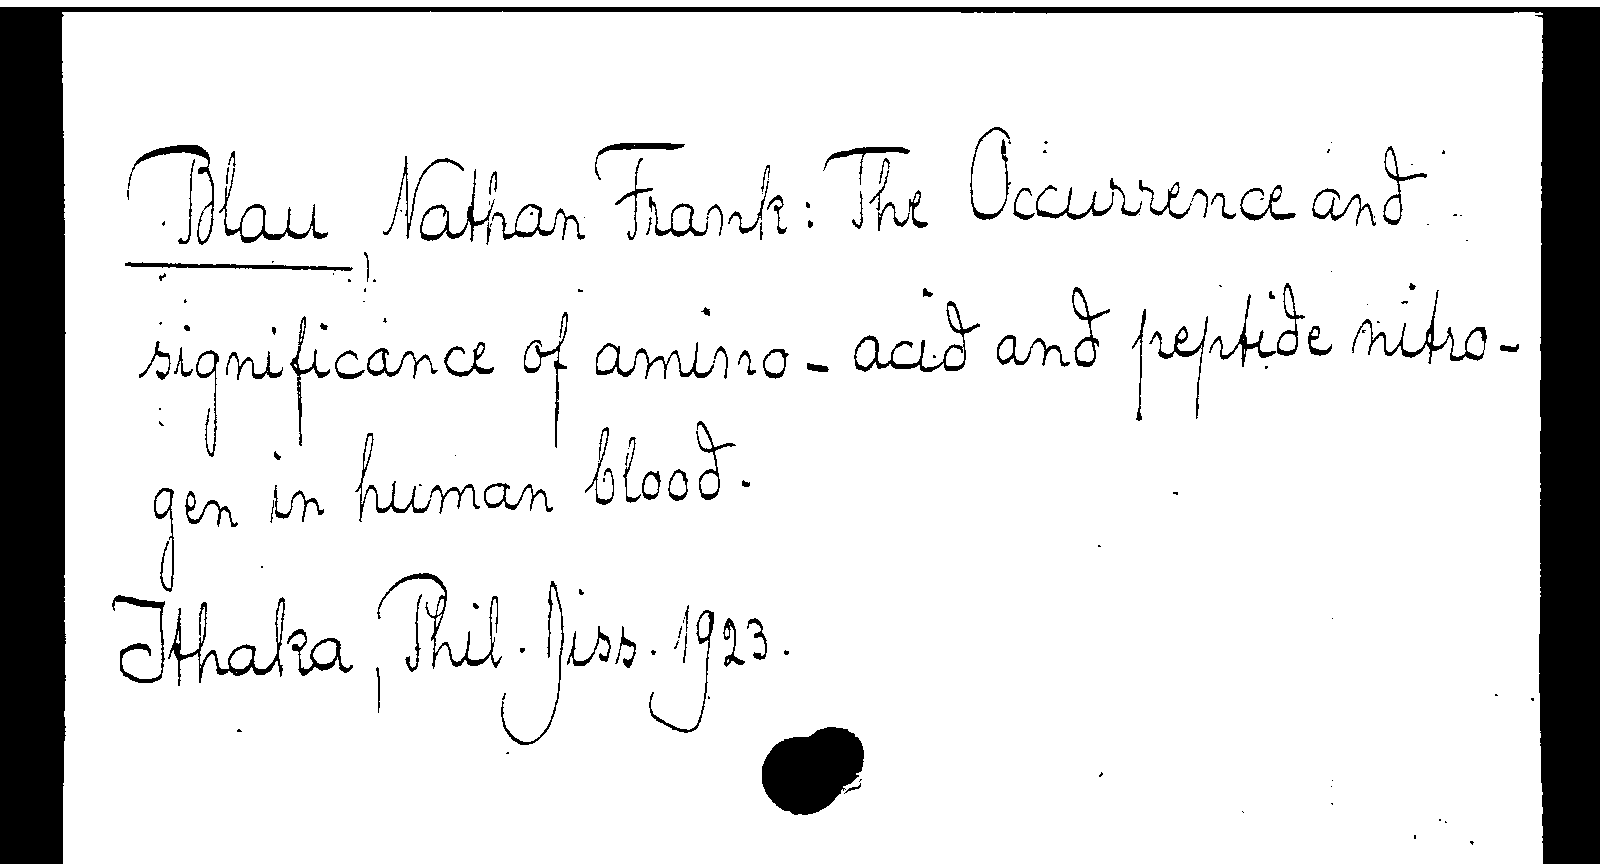 Blau, Nathan Frank: The Occurrence and
significance of amino-acid and peptide nitro-
gen in human blood.
Ithaka, Phil. Diss. 1923.